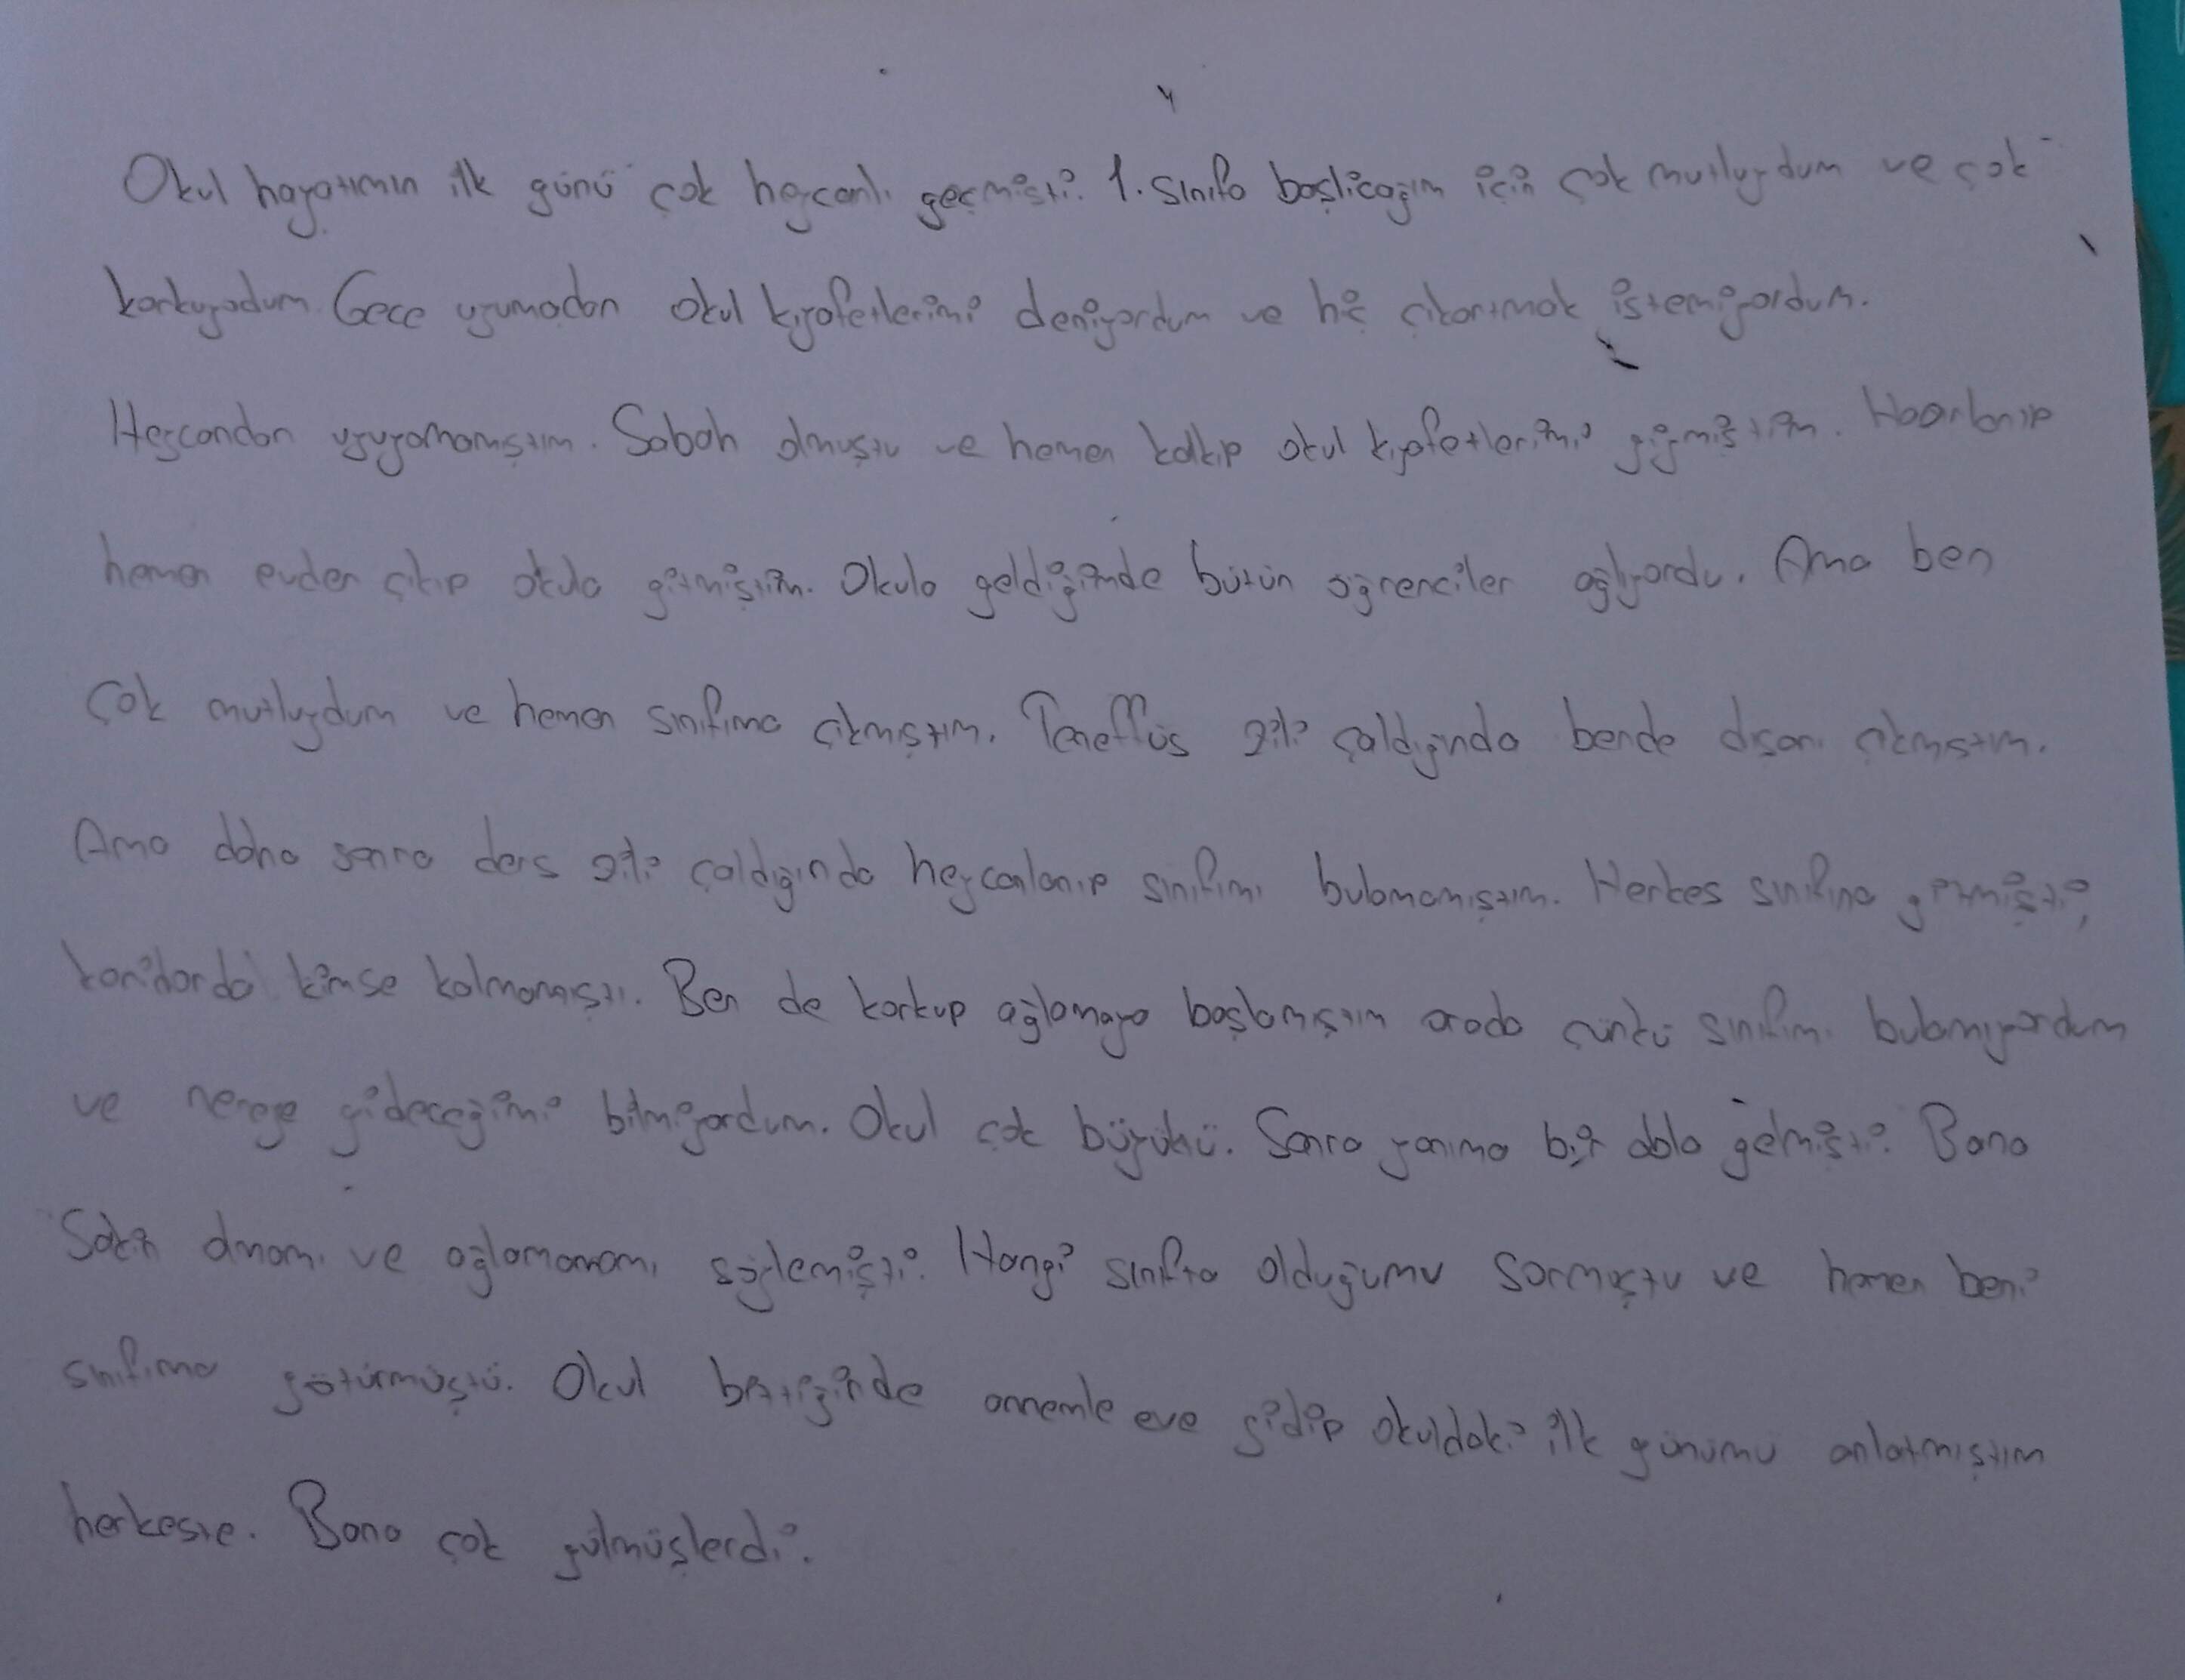 Okul hayatımın ilk günü çok heycanlı geçmişti. 1. sınıfa başlicağım için çok mutluydum ve çok
korkuyodum. Gece uyumadan okul kıyafetlerimi deniyordum ve hiç çıkartmak istemiyordum.
Heycandan uyuyamamıştım. Sabah olmuştu ve hemen kalkıp okul kıyafetlerimi giymiştim. Hazırlanıp
hemen evden çıkıp okula gitmiştim. Okula geldiğimde bütün öğrenciler ağlıyordu. Ama ben
çok mutluydum ve hemen sınıfıma çıkmıştım. Teneffüs zili çaldığında bende dışarı çıkmıştım.
Ama daha sonra ders zili çaldığında heycanlanıp sınıfımı bulamamıştım. Herkes sınıfına gitmişti,
koridorda kimse kalmamıştı. Ben de korkup ağlamaya başlamıştım orada çünkü sınıfımı bulamıyordum
ve nereye gideceğimi bilmiyordum. Okul çok büyüktü. Sonra yanıma bir abla gelmişti. Bana
sakin olmamı ve ağlamamamı söylemişti. Hangi sınıfta olduğumu sormuştu ve hemen beni
sınıfıma götürmüştü. Okul bittiğinde annemle eve gidip okuldaki ilk günümü anlatmıştım
herkeste. Bana çok gülmüşlerdi.